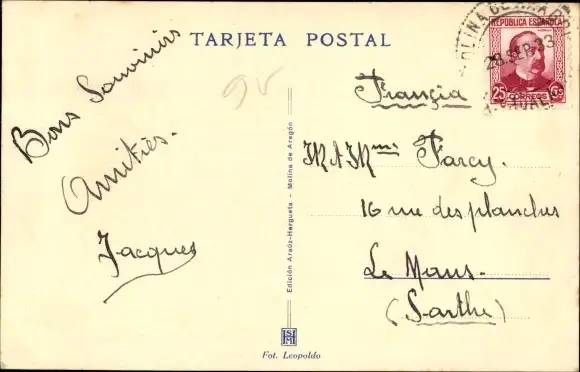 TARJETA POSTAL
Bons Souvenirs
Amitiés.
Jacques
Edición Araúz-Hergueta - Molina de Aragón
Fot. Leopoldo
REPÚBLICA ESPAÑOLA
25 CORREOS Cts
MOLINA DE ARAGON
28.SEP.33
Françia
Farcy.
16 rue des planches
Le Mans.
(Sarthe)